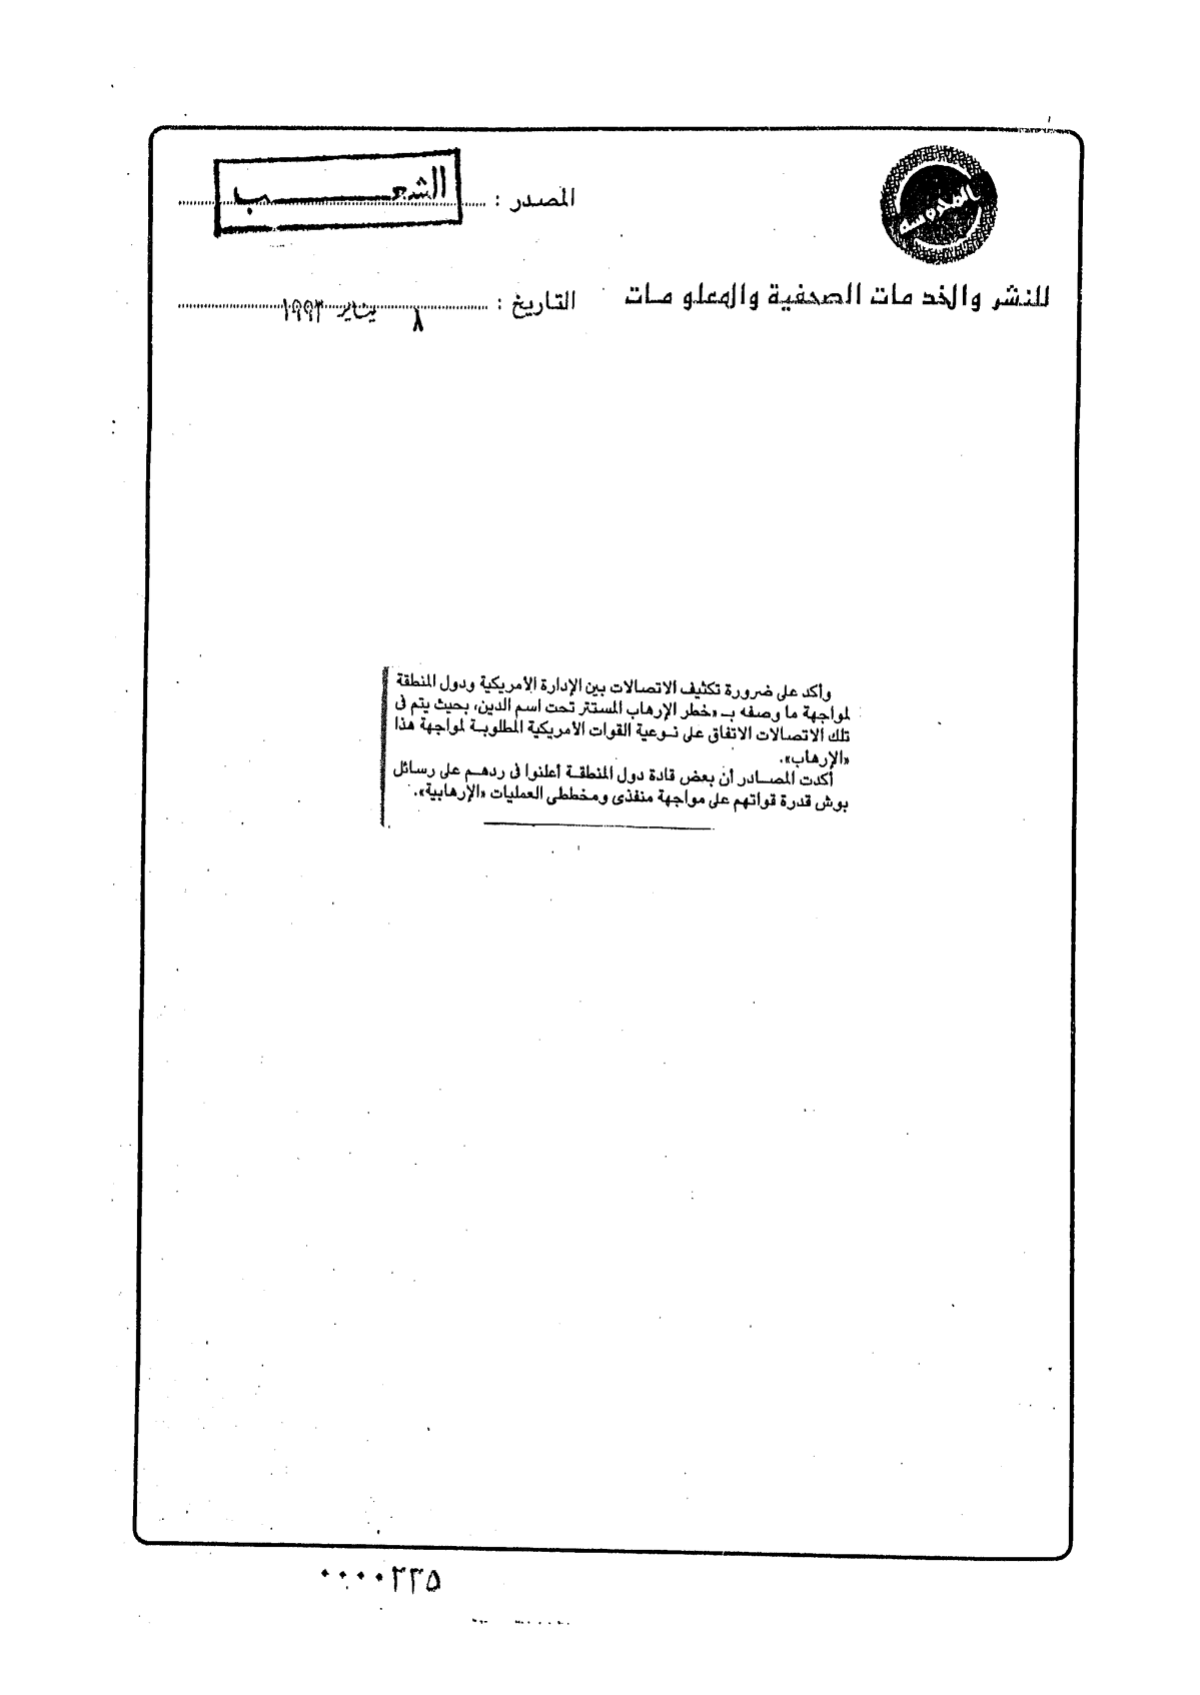 المحروسة
للنشر والخدمات الصحفية والمعلومات
المصدر :
الشعب
التاريخ : ٨ يناير ١٩٩٣
وأكد على ضرورة تكثيف الاتصالات بين الإدارة الأمريكية ودول المنطقة
لمواجهة ما وصفه بـ «خطر الإرهاب المستتر تحت اسم الدين، بحيث يتم فى
تلك الاتصالات الاتفاق على نوعية القوات الأمريكية المطلوبة لمواجهة هذا
«الإرهاب».
أكدت المصادر أن بعض قادة دول المنطقة أعلنوا فى ردهم على رسائل
بوش قدرة قواتهم على مواجهة منفذى ومخططى العمليات «الإرهابية».